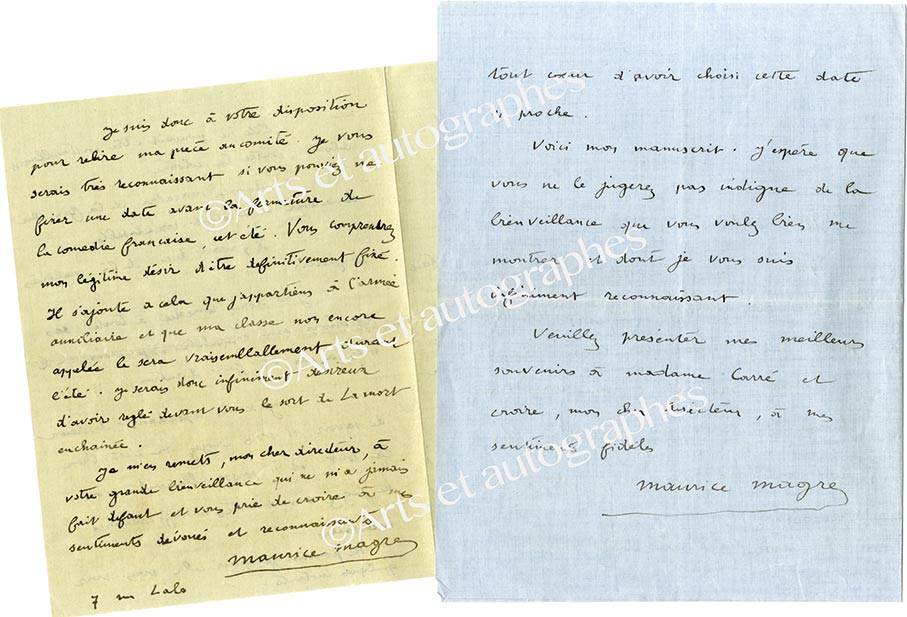 Je suis donc à votre disposition
pour relire ma pièce au comité. Je vous
serais très reconnaissant si vous pouviez me
fixer une date avant la fermeture de
la comedie française, cet été. Vous comprendrez
mon légitime désir d'être definitivement fixé.
Il s'ajoute a cela que j'appartiens à l'armée
auxiliaire et que ma classe non encore
appelée le sera vraisemblablement durant
l'été. Je serais donc infiniment désireux
d'avoir reglé devant vous le sort de La mort
enchainée.
Je m'en remets, mon cher directeur, à
votre grande bienveillance qui ne m'a jamais
fait defaut et vous prie de croire à mes
sentiments devoués et reconnaissants
Maurice Magre
7 rue Lalo
tout cœur d'avoir choisi cette date
si proche.
Voici mon manuscrit. J'espère que
vous ne le jugerez pas indigne de la
bienveillance que vous voulez bien me
montrer et dont je vous suis
infiniment reconnaissant.
Veuillez présenter mes meilleurs
souvenirs à madame Carré et
croire, mon cher directeur, à mes
sentiments fidèles
Maurice Magre
©Arts et autographes
©Arts et autographes
©Arts et autographes
©Arts et autographes